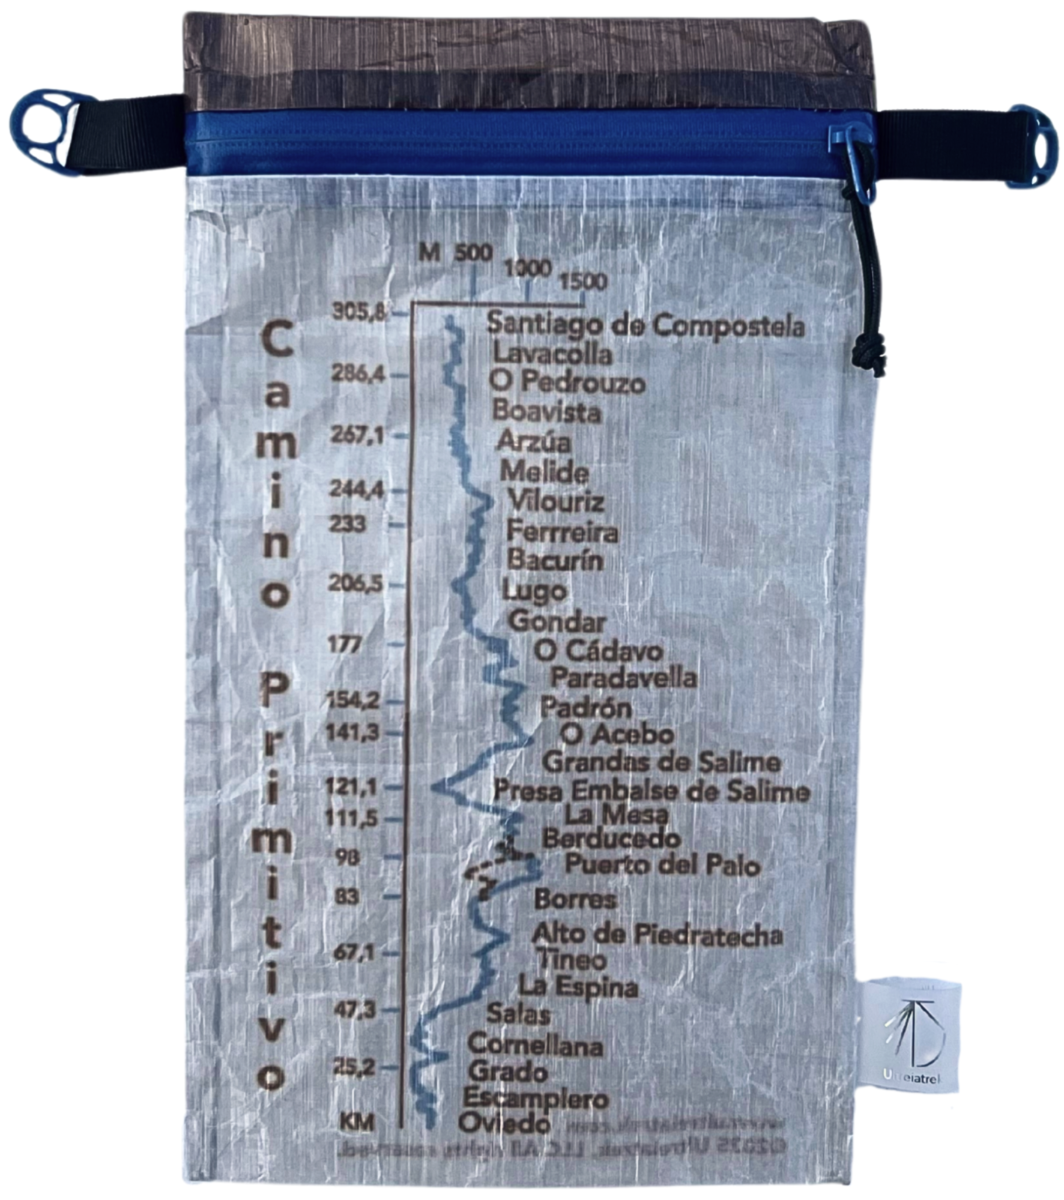 M 500 1000 1500
Camino Primitivo
305,8
Santiago de Compostela
Lavacolla
286,4
O Pedrouzo
Boavista
267,1
Arzúa
Melide
244,4
Vilouriz
233
Ferrreira
Bacurín
206,5
Lugo
Gondar
177
O Cádavo
Paradavella
154,2
Padrón
141,3
O Acebo
Grandas de Salime
121,1
Presa Embalse de Salime
111,5
La Mesa
Berducedo
98
Puerto del Palo
83
Borres
Alto de Piedratecha
67,1
Tineo
La Espina
47,3
Salas
Cornellana
25,2
Grado
Escamplero
KM
Oviedo
www.ultreiatrek.com
©2025 Ultreiatrek, LLC All rights reserved.